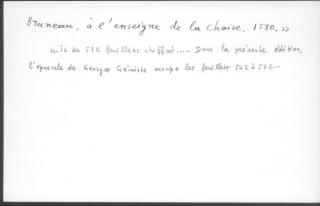 Bruneau, à l'enseigne de la Chaire, 1580, »
in-16 de 572 feuillets chiffrés..... Dans la présente édition,
l'opuscule de Georges Gémiste occupe les feuillets 542 à 572.-